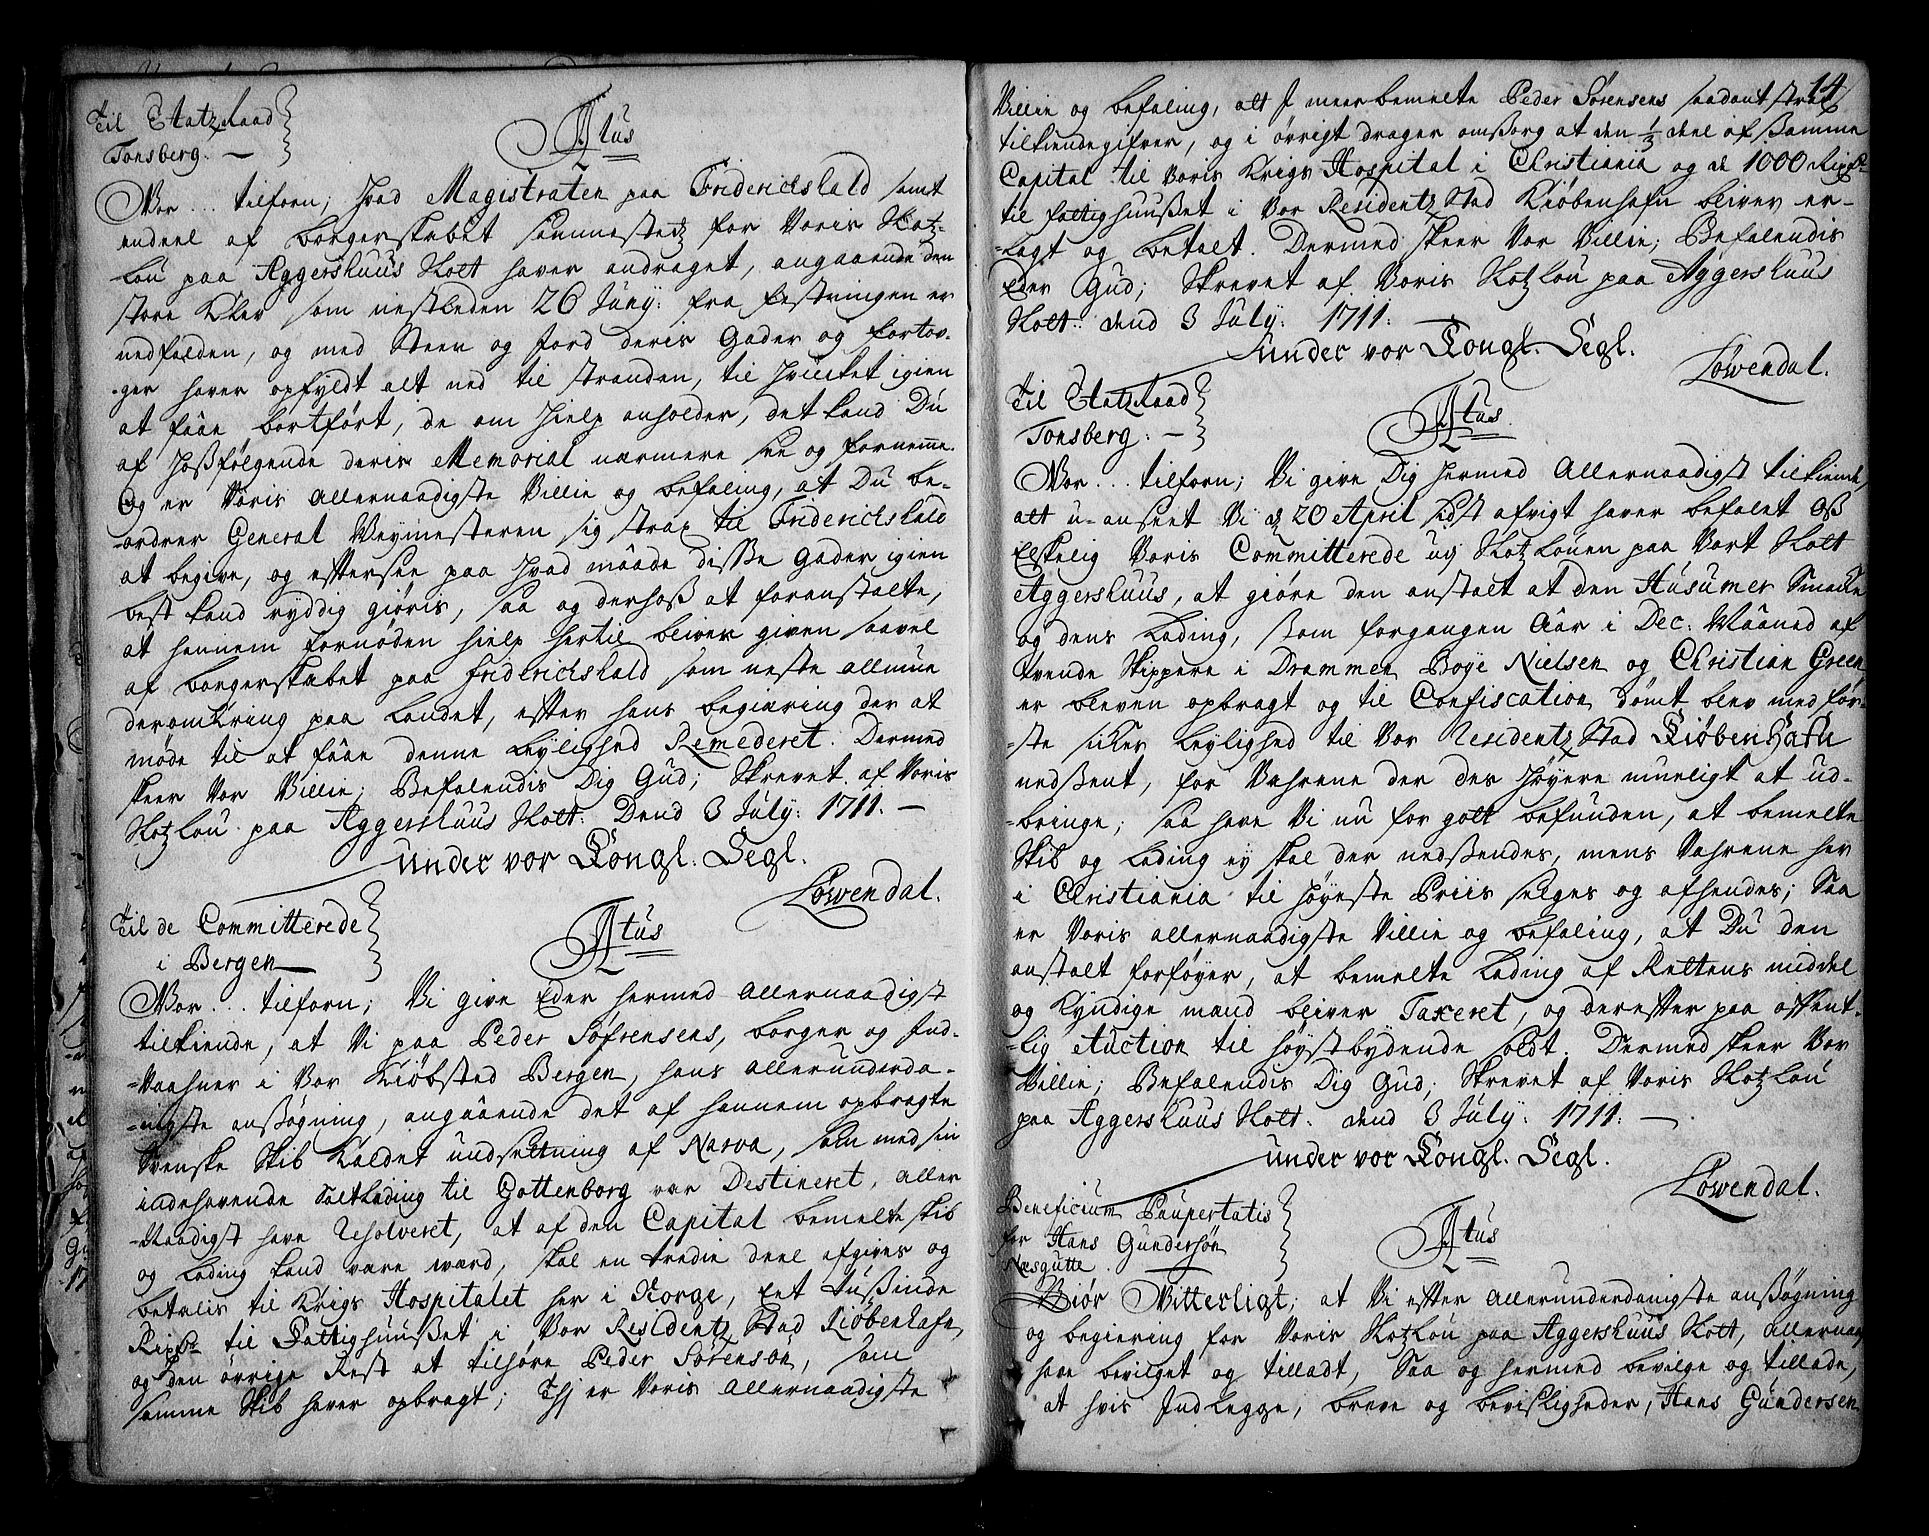 Til Etatzraad
Tonsberg. —
Atus
Vor... tilforn; Hvad Magistraten paa Friderichshald samt
endeel af borgerskabet sammestedz for Voris Slotz-
lou paa Aggershuus Slott haver andraget, angaaende den
store Klev som nestleden 26 Juny: fra festningen er
nedfalden, og med Steen og Jord deris Gader og fortov-
ger haver opfyldt alt ned til stranden, til hvilcket igien
at faae bortført, de om hielp anholder, det kand Du
af hoßfølgende deris Memorial nærmere see og fornemme.
Og er Voris allernaadigste Villie og befaling, at Du be-
ordrer General Veymesteren sig strax til Friderichshald
at begive, og eftersee paa hvad maade disse Gader igien
best kand ryddig giøris, saa og derhoß at foranstalte,
at hannem fornøden hielp hertil bliver given saavel
af borgerskabet paa Friderichshald som neste allmue
deromkring paa Landet, efter hans begiæring der at
møde til at faae denne Leylighed Remederet. Dermed
skeer Vor Villie; Befalendis Dig Gud; Skrevet af Voris
Slotzlou paa Aggershuus Slott. Dend 3 July: 1711. —
under vor Kongl. Segl.
Löwendal.
Til de Committerede
i Bergen
Atus
Vor... tilforn; Vi give Eder hermed allernaadigst
tilkiende, at Vi paa Peder Søfrensens, borger og Ind-
-vaahner i Vor Kiøbsted Bergen, hans allerunderda-
-nigste ansøgning, angaaende det af hannem opbragte
Svenske Skib kaldet undsettning af Narva, som med sin
indehavende Saltlading til Gottenborg var Destineret, aller
-Naadigst have Resolveret, at af den Capital bemelte Skib
og Lading kand være værd, skal en tredie deel afgives og
betalis til Krigs Hospitalet her i Norge, eet tusinde
Rixdr. til Fattighuuset i Vor Residentz Stad Kiøbenhafn,
og den øvrige Rest at tilhøre Peder Sørensøn, som
samme Skib haver opbragt; Thj er Voris allernaadigste
14
Villie og befaling, at I meerbemelte Peder Sørensens saadant strax
tilkiendegifver, og i øvrigt drager omsorg at den 1/3 deel af Samme
Capital til Voris Krigs Hospital i Christiania og de 1000 Rixdr
til fattighuuset i Vor Residentz Stad Kiøbenhafn bliver er-
-lagt og betalt. Dermed skeer Vor Villie; Befalendis
Eder Gud; Skrevet af Voris Slotzlou paa Aggershuus
Slott. dend 3 July: 1711.
under vor Kongl. Segl.
Löwendal.
Til Etatzraad
Tonsberg. —
Atus
Vor... tilforn; Vi give Dig hermed Allernaadigst tilkiende,
alt u-anseet Vi d. 20 April sidst afvigt haver befalet Oß
Elskelig Voris Committerede udj Slotzlouen paa Vort Slott
Aggershuus, at giøre den anstalt at den Husumer Smacke
og dens Lading, som forgangen Aar i Dec. Maaned af
tvende Skippere i Drammen Boye Nielsen og Christian Green
er bleven opbragt og til Confiscation dømt blev med før-
-ste sicker Leylighed til Vor Residentz Stad Kiøbenhafn
nedsent, for Vahrene der des høyere mueligt at ud-
-bringe; saa have Vi nu for gott befunden, at bemelte
Skib og Lading ey skal der nedsendes, mens Vahrene her
i Christiania til høyeste Priis selges og afhendes; Saa
er Voris allernaadigste Villie og befaling, at Du den
anstalt forføyer, at bemelte Lading af Rettens middel
og Kyndige mænd bliver Taxeret, og derefter paa offent-
-lig Auction til høystbydende soldt. Dermed skeer Vor
Villie; Befalendis Dig Gud; Skrevet af Voris Slotzlou
paa Aggershuus Slott. dend 3 July: 1711. —
under vor Kongl. Segl.
Löwendal.
Beneficium Paupertatis
for Hans Gundersøn
Næsgutte.
Atus
Giør Vitterligt; at Vi efter allerunderdanigste ansøgning
og begiering for Voris Slotzlou paa Aggershuus Slott, allernaa
have bevilget og tilladt, Saa og hermed bevilge og tillade,
at hvis Indlegge, breve og bevisligheder, Hans Gundersen